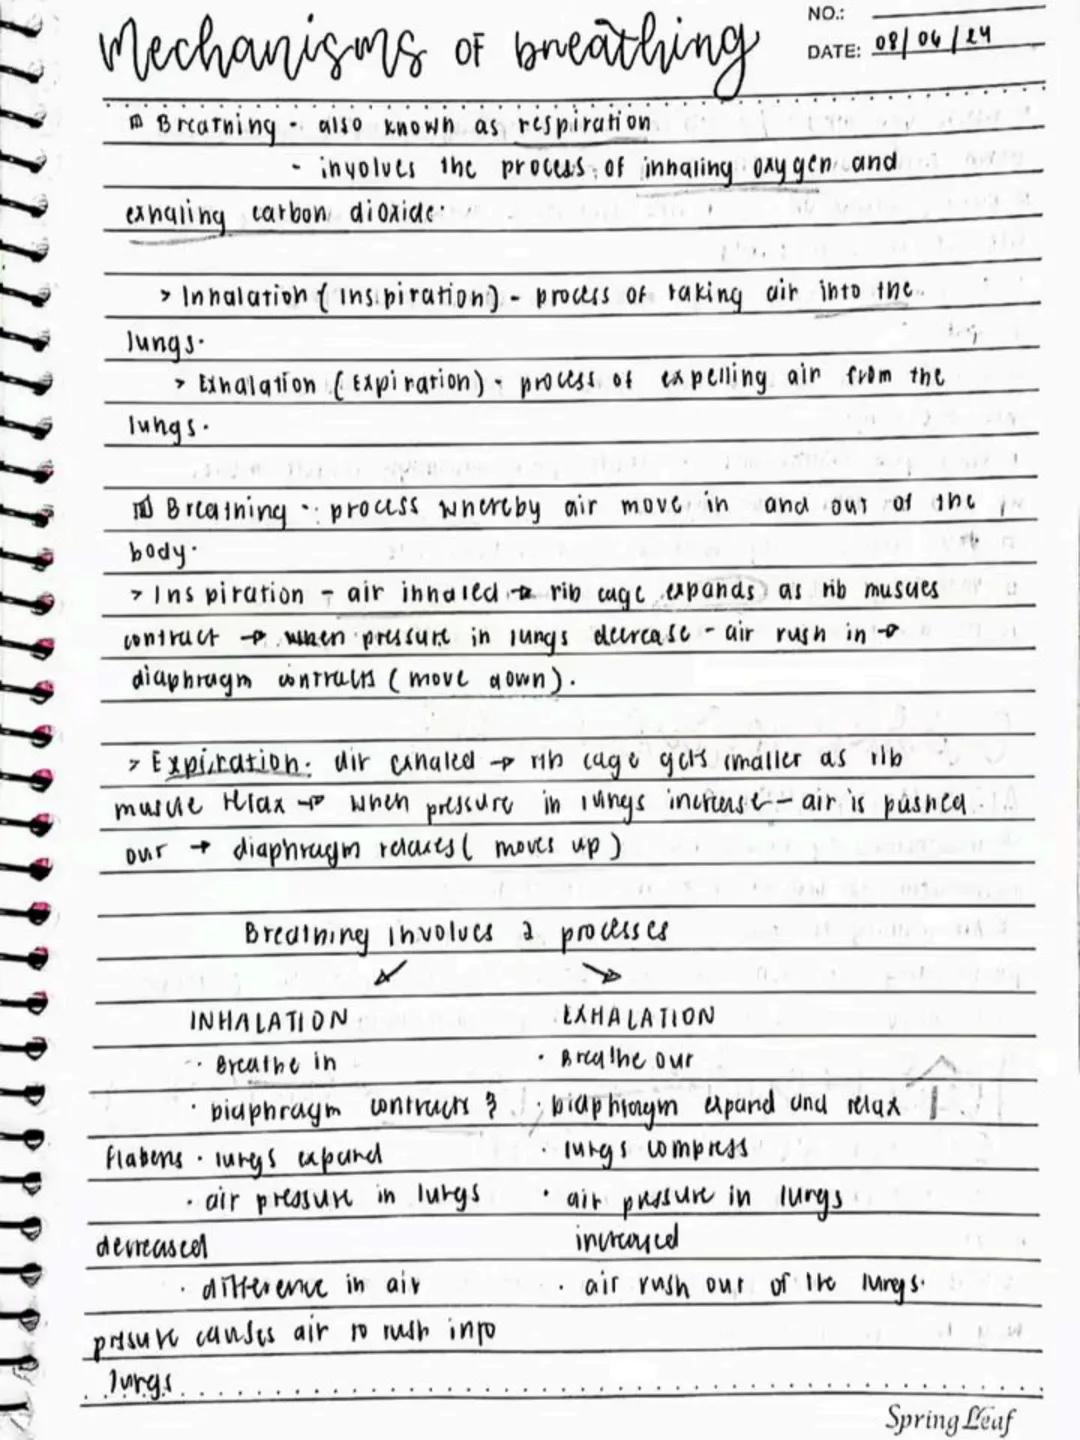 Mechanisms of breathing
NO.:
DATE: 08/06/24
Breathing - also known as respiration
- involves the process of inhaling oxygen and
exhaling carbon dioxide.
> Inhalation (Inspiration) - process of taking air into the
lungs.
> Exhalation (Expiration) - process of expelling air from the
lungs.
Breathing - process whereby air move in and out of the
body.
> Inspiration - air inhaled → rib cage expands as rib muscles
contract → when pressure in lungs decrease - air rush in →
diaphragm contracts (move down).
> Expiration. air exhaled → rib cage gets smaller as rib
muscle relax → when pressure in lungs increase - air is pushed
out → diaphragm relaxes (moves up)
Breathing involves 2 processes
INHALATION EXHALATION
· Breathe in · Breathe out
· Diaphragm contracts & · Diaphragm expand and relax
flatens · lungs expand · lungs compress
· air pressure in lungs · air pressure in lungs
decreased increased
· difference in air · air rush out of the lungs.
pressure causes air to rush into
lungs
Spring Leaf